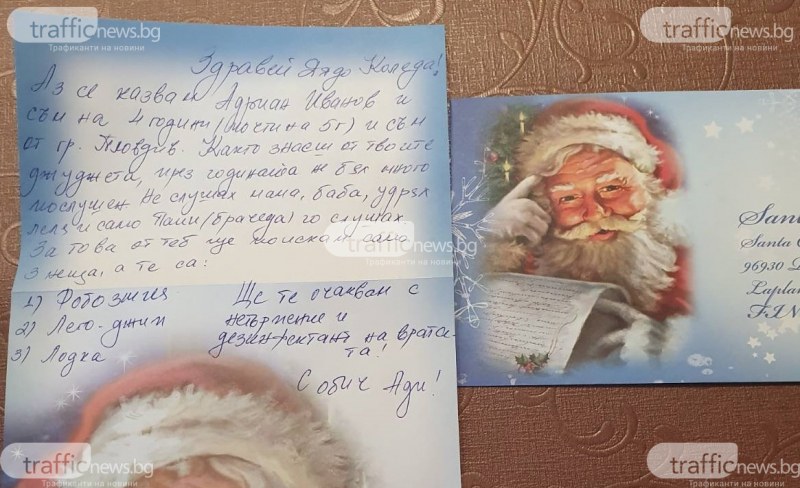 trafficnews.bg
Трафиканти на новини
trafficnews.bg
Трафиканти на новини
Здравей Дядо Коледа!
Аз се казвам Адриан Иванов и
съм на 4 години (почти на 5г) и съм
от гр. Пловдив. Както знаеш от твоите
джуджета, през годината не бях много
послушен. Не слушах мама, баба, удрях
леля и само Папи (брачеда) го слушах.
За това от теб ще поискам само
3 неща, а те са:
1) Робозмия
2) Лего-джип
3) Лодка
Ще те очаквам с
нетърпение и
дезинфектант на врата-
та!
С обич Ади!
trafficnews.bg
Трафиканти на новини
San
Santa
96930
Laplan
FIN
trafficnews.bg
Трафиканти на новини
trafficnews.bg
Трафиканти на новини